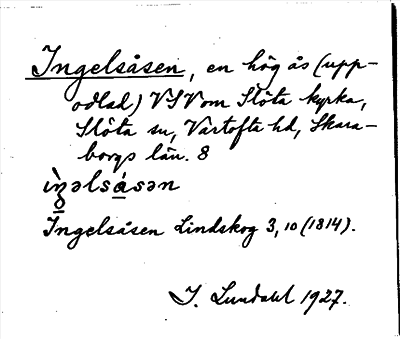 Ingelsåsen, en hög ås (upp-
odlad) VSV om Slöta kyrka,
Slöta sn, Vartofta hd, Skara-
borgs län. 8
ìŋəlsásən
Ingelsåsen Lindskog 3, 10 (1814).
J. Lundahl 1927.